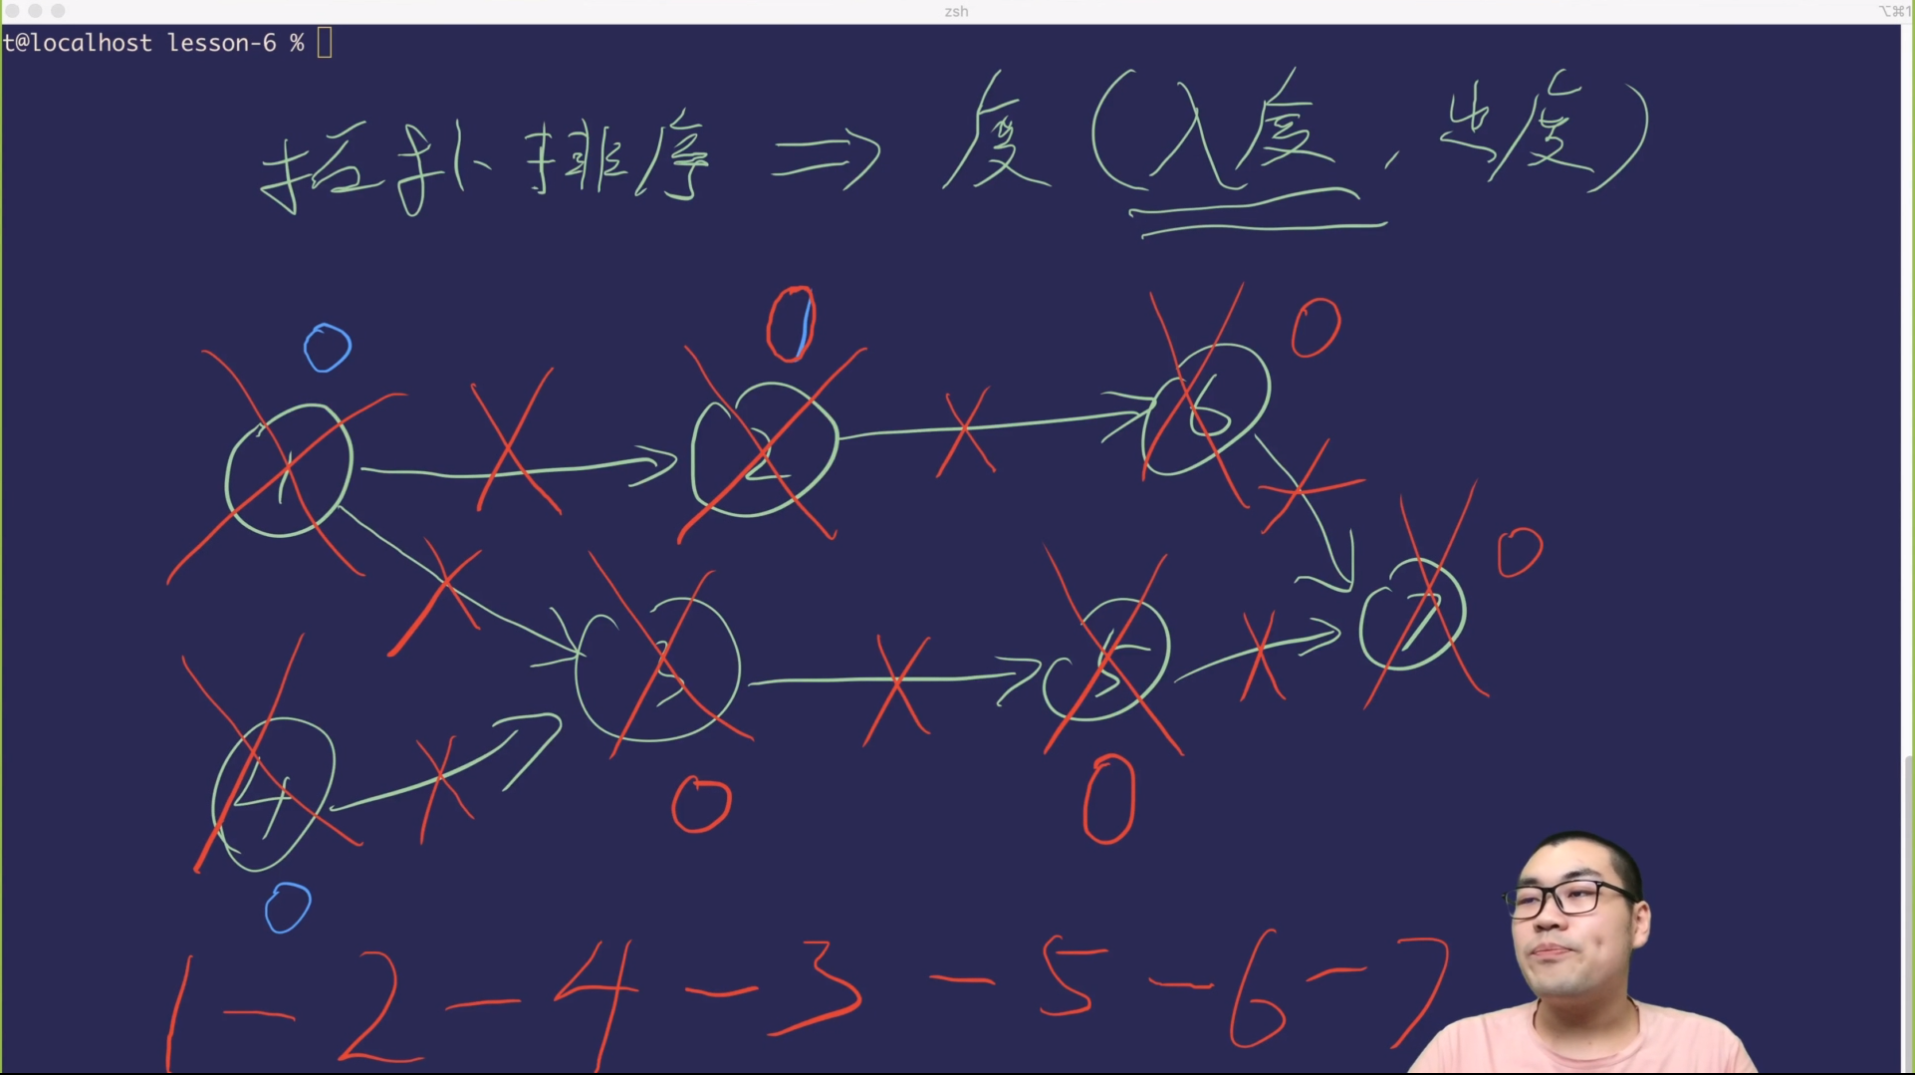 zsh
⌥⌘1
t@localhost lesson-6 %
拓扑排序 ⇒ 度（入度，出度）
0 0 0
1 2 6
0
3 5 7
4
0 0
0
1-2-4-3-5-6-7